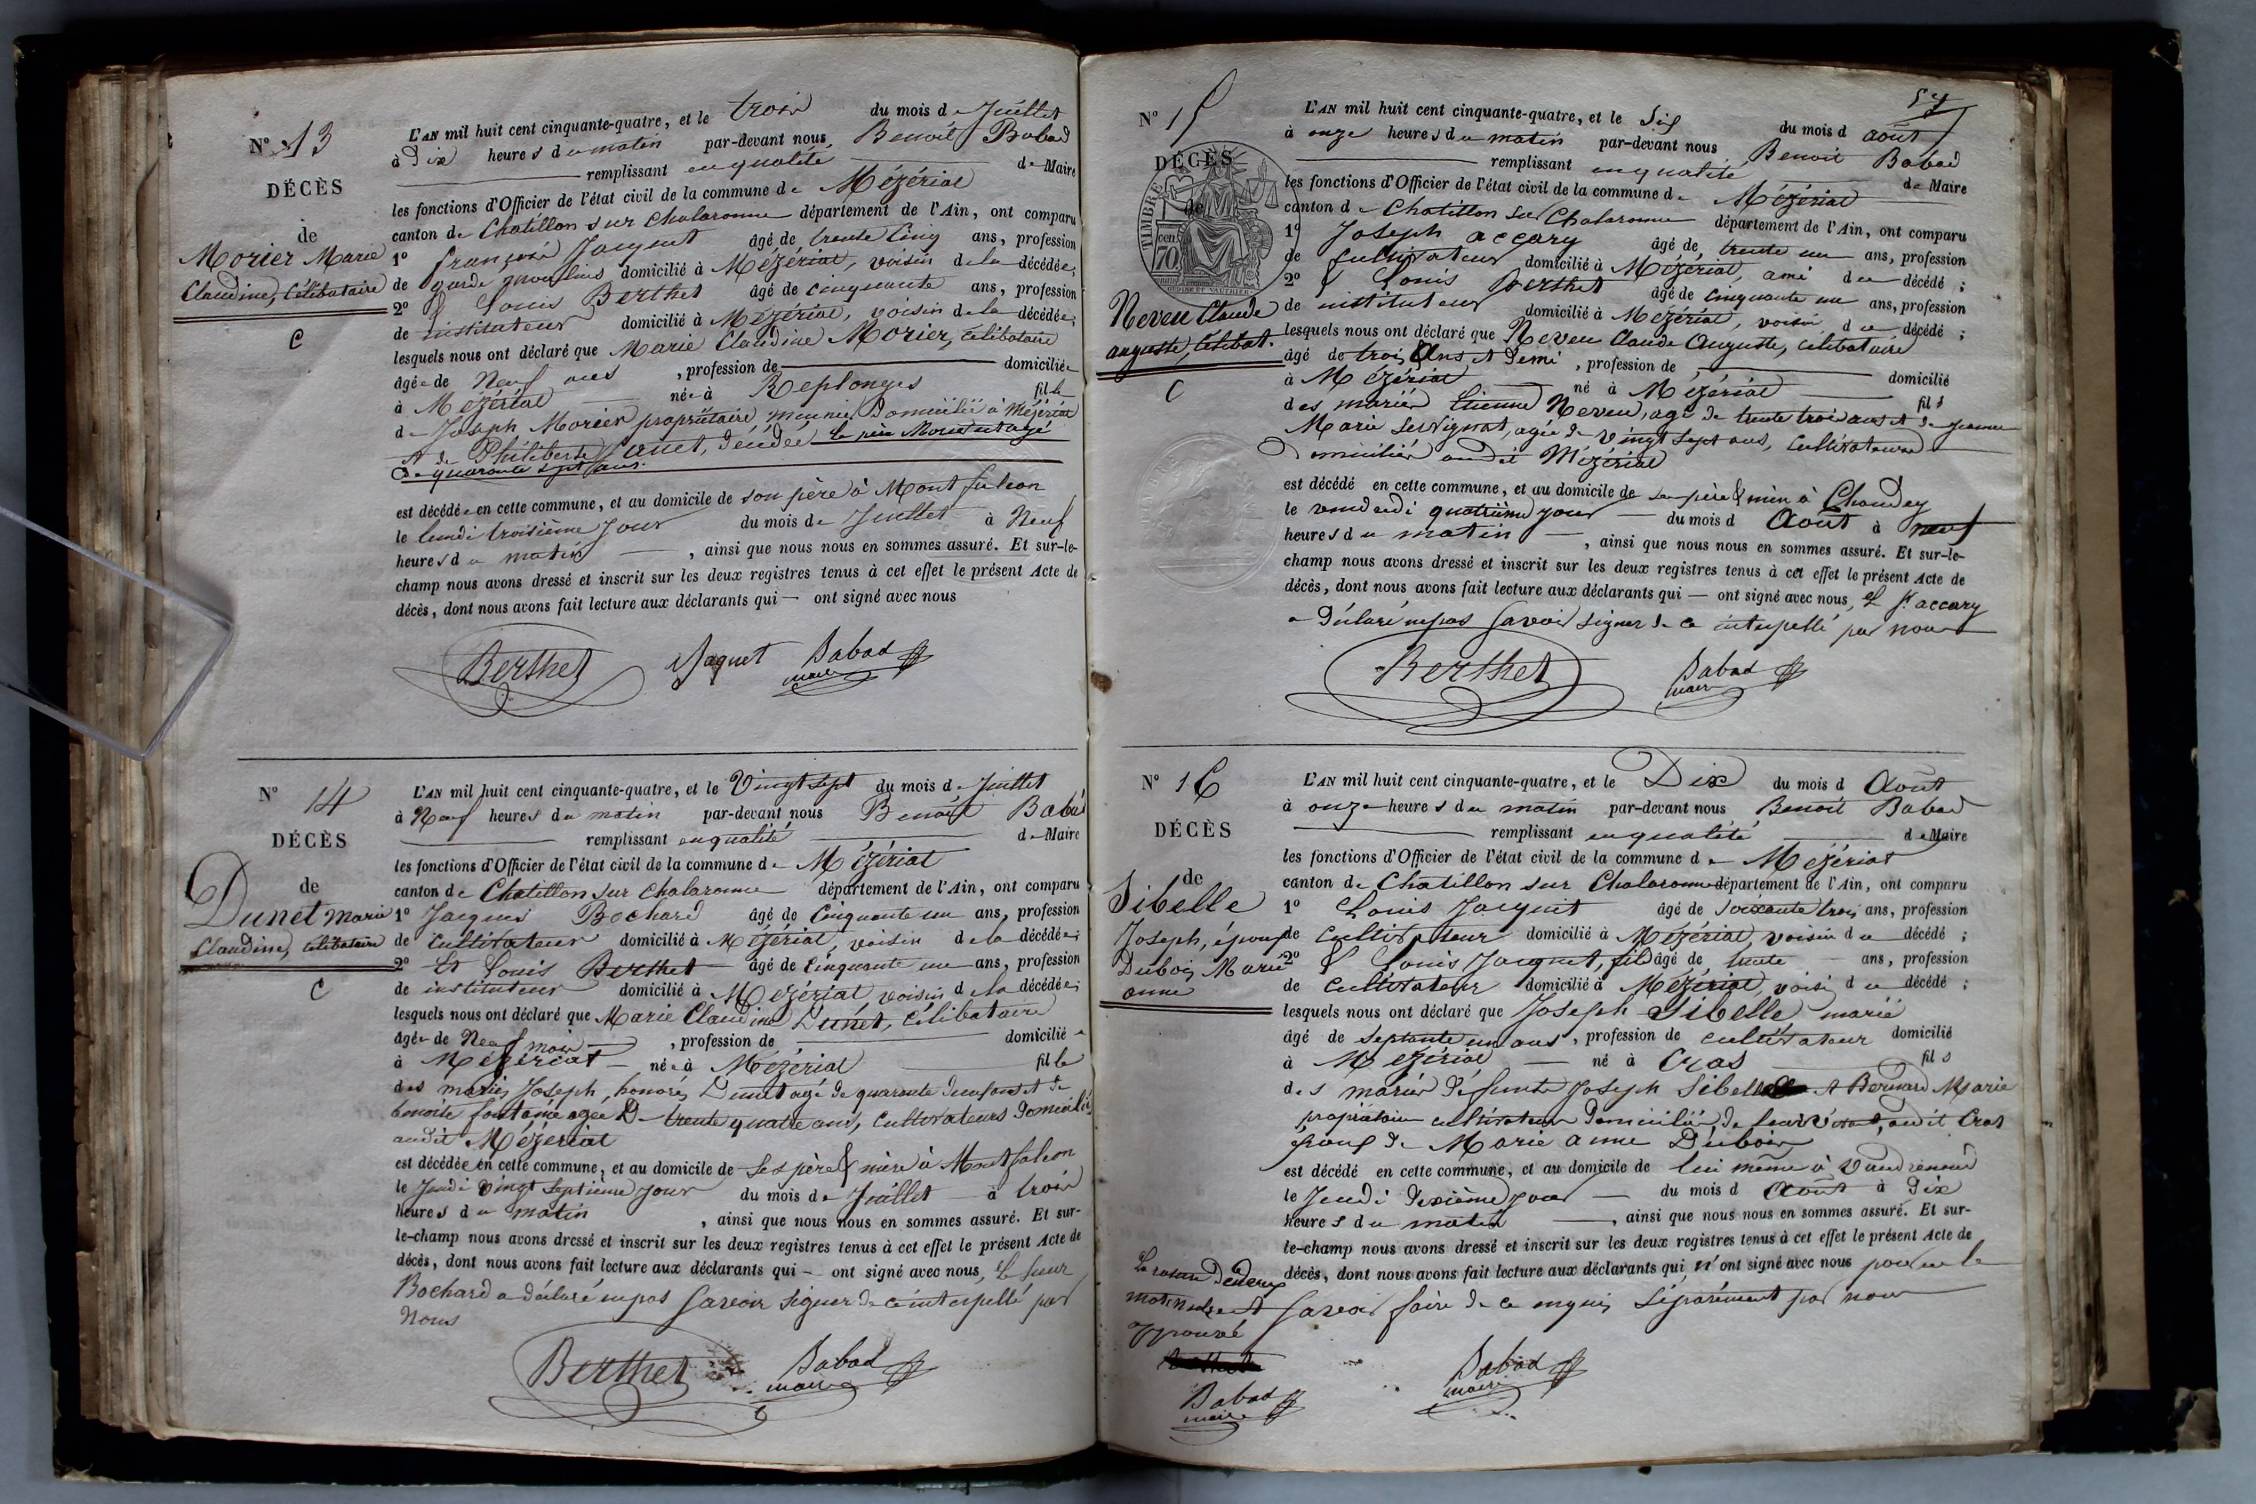 N° 13
DÉCÈS
de
Morier Marie
Claudine, Célibataire
C
L'AN mil huit cent cinquante-quatre, et le trois du mois de Juillet
à Dix heures du matin par-devant nous Benoit Babad
remplissant en qualité de Maire
les fonctions d'Officier de l'état civil de la commune de Mézériat
canton de Chatillon sur Chalaronne département de l'Ain, ont comparu
1° François Jacquet âgé de trente cinq ans, profession
de garde moulins domicilié à Mézériat, voisin de la décédée;
2° & Louis Berthet âgé de cinquante ans, profession
de instituteur domicilié à Mézériat, voisin de la décédée;
lesquels nous ont déclaré que Marie Claudine Morier, célibataire
âgée de Neuf ans, profession de domiciliée
à Mézériat née à Replonges fille
de Joseph Morier propriétaire, meunier Domicilié à Mézériat
et de Philiberte Canet, décédée le père Morier âgé
De quarante sept ans.
est décédée en cette commune, et au domicile de son père à Montfalcon
le lundi troisième jour du mois de Juillet à Neuf
heures du matin, ainsi que nous nous en sommes assuré. Et sur-le-
champ nous avons dressé et inscrit sur les deux registres tenus à cet effet le présent Acte de
décès, dont nous avons fait lecture aux déclarants qui — ont signé avec nous
Berthet Jaquet Babad
maire
N° 14
DÉCÈS
de
Dunet Marie
Claudine, célibataire
C
L'AN mil huit cent cinquante-quatre, et le Vingt sept du mois de Juillet
à Neuf heures du matin par-devant nous Benoit Babad
remplissant en qualité de Maire
les fonctions d'Officier de l'état civil de la commune de Mézériat
canton de Chatillon sur Chalaronne département de l'Ain, ont comparu
1° Jacques Bochard âgé de Cinquante un ans, profession
de cultivateur domicilié à Mézériat, voisin de la décédée;
2° Et Louis Berthet âgé de Cinquante un ans, profession
de instituteur domicilié à Mézériat, voisin de la décédée;
lesquels nous ont déclaré que Marie Claudine Dunet, célibataire
âgée de Neuf mois, profession de domiciliée
à Mézériat née à Mézériat fille
des mariés Joseph, honoré, Dunet agé de quarante deux ans et de
benoite fontaine agée De trente quatre ans, Cultivateurs Domiciliés
audit Mézériat
est décédée en cette commune, et au domicile de ses père & mère à Montfalcon
le Jeudi vingt septième jour du mois de Juillet à trois
heures du matin, ainsi que nous nous en sommes assuré. Et sur-
le-champ nous avons dressé et inscrit sur les deux registres tenus à cet effet le présent Acte de
décès, dont nous avons fait lecture aux déclarants qui — ont signé avec nous, et le sieur
Bochard a déclaré ne pas Savoir Signer de ce interpellé par
Nous
Berthet Babad
maire
57
N° 15
DÉCÈS
de
TIMBRE
70 cen
Neveu Claude
auguste, célibat.
C
L'AN mil huit cent cinquante-quatre, et le Six du mois d août
à onze heures du matin par-devant nous Benoit Babad
remplissant en qualité de Maire
les fonctions d'Officier de l'état civil de la commune de Mézériat
canton de Chatillon sur Chalaronne département de l'Ain, ont comparu
1° Joseph accary âgé de trente un ans, profession
de cultivateur domicilié à Mézériat, ami du décédé;
2° & Louis Berthet âgé de cinquante un ans, profession
de instituteur domicilié à Mézériat, voisin du décédé;
lesquels nous ont déclaré que Neveu Claude Auguste, célibataire
âgé de trois Ans et Demi, profession de domicilié
à Mézériat né à Mézériat fils
des mariés Etienne Neveu, agé de trente trois ans et de Jeanne
Marie Servignat, agée de vingt sept ans, Cultivateurs
Domiciliés audit Mézériat
est décédé en cette commune, et au domicile de ses père & mère à Chandey
le vendredi quatrième jour du mois d Août à neuf
heures du matin, ainsi que nous nous en sommes assuré. Et sur-le-
champ nous avons dressé et inscrit sur les deux registres tenus à cet effet le présent Acte de
décès, dont nous avons fait lecture aux déclarants qui — ont signé avec nous, et Sr accary
a Déclaré ne pas Savoir signer de ce interpellé par nous
Berthet Babad
maire
N° 16
DÉCÈS
de
Sibelle
Joseph, époux
Dubois Marie
anne
L'AN mil huit cent cinquante-quatre, et le Dix du mois d Août
à onze heures du matin par-devant nous Benoit Babad
remplissant en qualité de Maire
les fonctions d'Officier de l'état civil de la commune de Mézériat
canton de Chatillon sur Chalaronne département de l'Ain, ont comparu
1° Louis Jacquet âgé de soixante trois ans, profession
de cultivateur domicilié à Mézériat, voisin du décédé;
2° & Louis Jacquet, fils âgé de trente ans, profession
de cultivateur domicilié à Mézériat, voisin du décédé;
lesquels nous ont déclaré que Joseph Sibelle marié
âgé de septante un ans, profession de cultivateur domicilié
à Mézériat né à Cras fils
des mariés défunts Joseph Sibelle et Bernard Marie
propriétaires cultivateurs Domiciliés de leur vivant, audit Cras
époux de Marie anne Dubois
est décédé en cette commune, et au domicile de lui même à Vaudrenoud
le Jeudi dixième jour du mois d Août à Dix
heures du matin, ainsi que nous nous en sommes assuré. Et sur-
le-champ nous avons dressé et inscrit sur les deux registres tenus à cet effet le présent Acte de
décès, dont nous avons fait lecture aux déclarants qui n'ont signé avec nous pour ne le
Savoir faire de ce enquis Séparément par nous
La rature De deux
mots nuls et
approuvé
Babad
maire
Babad
maire